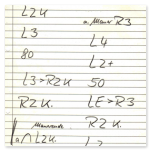 L2K
L3
80
L3>R2K
R2K.
L2K.
R3
L4
L2+
50
LE>R3
R2K.